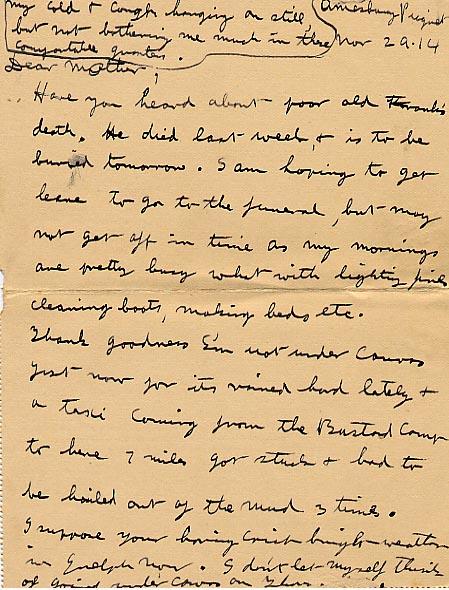 my cold & cough hanging on still
but not bothering me much in these
comfortable quarters.
Amesbury Picquet
Nov 29.14
Dear Mother,
Have you heard about poor old Frank's
death. He died last week, & is to be
buried tomorrow. I am hoping to get
leave to go to the funeral, but may
not get off in time as my mornings
are pretty busy what with lighting fires
cleaning boots, making beds etc.
Thank goodness I'm not under canvas
just now for its rained hard lately &
a taxi coming from the Bustard Camp
to here 7 miles got stuck & had to
be hailed out of the mud 3 times.
I suppose your having crisp bright weather
in Guelph now. I don't let myself think
of going under canvas on